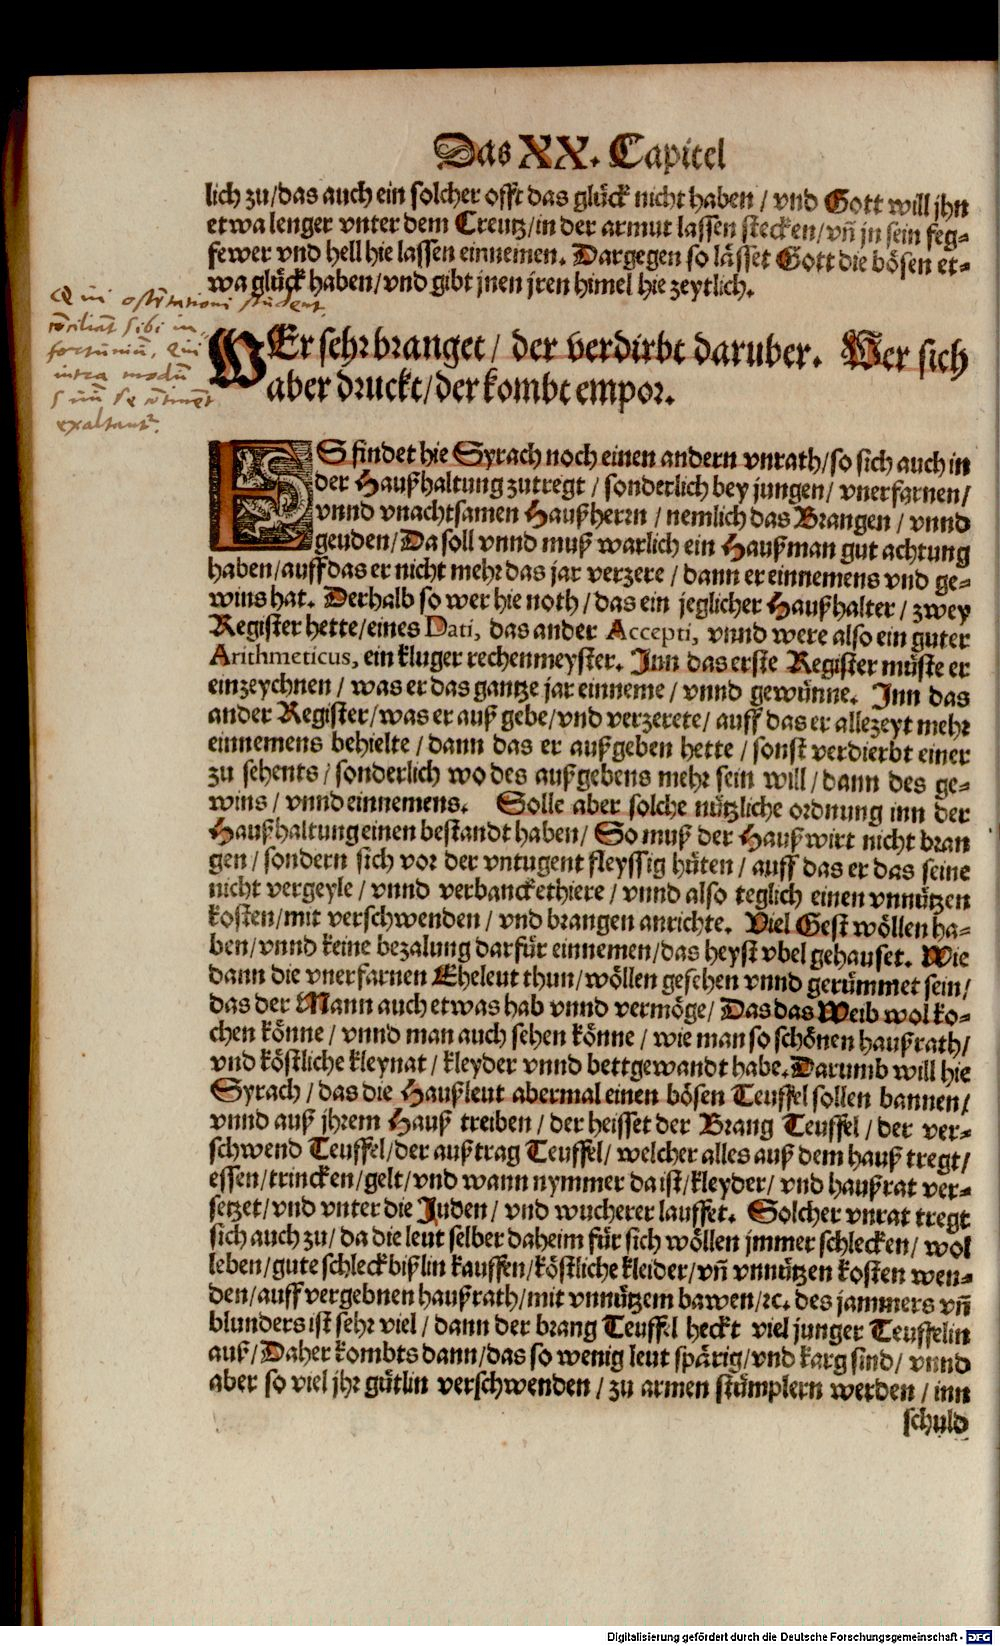 Das XX. Capitel
lich zu/das auch ein solcher offt das glück nicht haben / vnd Gott will jhn
etwa lenger vnter dem Creutz/in der armut lassen stecken/vñ jn sein feg-
fewer vnd hell hie lassen einnemen. Dargegen so lässet Gott die bösen et-
wa glück haben/vnd gibt jnen jren himel hie zeytlich.
Qui ostẽtationi student
cõciliãt sibi in-
fortuniũ, Qui
intra modũ
suũ se cõtinẽt
exaltantr.
WEr sehr branget / der verdirbt daruber. Wer sich
aber druckt/der kombt empor.
ES findet hie Syrach noch einen andern vnrath/so sich auch in
der Haußhaltung zutregt / sonderlich bey jungen/ vnerfarnen/
vnnd vnachtsamen Haußherrn / nemlich das Brangen / vnnd
geuden/Da soll vnnd muß warlich ein Haußman gut achtung
haben/auff das er nicht mehr das jar verzere / dann er einnemens vnd ge-
wins hat. Derhalb so wer hie noth / das ein jeglicher Haußhalter / zwey
Register hette/eines Dati, das ander Accepti, vnnd were also ein guter
Arithmeticus, ein kluger rechenmeyster. Jnn das erste Register müste er
einzeychnen / was er das gantze jar einneme / vnnd gewünne. Jnn das
ander Register/was er auß gebe/vnd verzerete/ auff das er allezeyt mehr
einnemens behielte / dann das er außgeben hette / sonst verdierbt einer
zu sehents / sonderlich wo des außgebens mehr sein will / dann des ge-
wins / vnnd einnemens. Solle aber solche nützliche ordnung inn der
Haußhaltung einen bestandt haben/ So muß der Haußwirt nicht bran
gen / sondern sich vor der vntugent fleyssig hüten / auff das er das seine
nicht vergeyle / vnnd verbanckethiere / vnnd also teglich einen vnnützen
kosten/mit verschwenden / vnd brangen anrichte. Viel Gest wöllen ha-
ben/vnnd keine bezalung darfür einnemen/das heyst vbel gehauset. Wie
dann die vnerfarnen Eheleut thun/wöllen gesehen vnnd gerümmet sein/
das der Mann auch etwas hab vnnd vermöge/ Das das Weib wol ko-
chen könne / vnnd man auch sehen könne / wie man so schönen haußrath/
vnd köstliche kleynat / kleyder vnnd bettgewandt habe. Darumb will hie
Syrach / das die Haußleut abermal einen bösen Teuffel sollen bannen/
vnnd auß jhrem Hauß treiben / der heisset der Brang Teuffel / der ver-
schwend Teuffel/der außtrag Teuffel/ welcher alles auß dem hauß tregt/
essen/trincken/gelt/vnd wann nymmer da ist/kleyder/ vnd haußrat ver-
setzet/vnd vnter die Juden / vnd wucherer lauffet. Solcher vnrat tregt
sich auch zu/ da die leut selber daheim für sich wöllen jmmer schlecken/ wol
leben/gute schleckbißlin kauffen/köstliche kleider/vñ vnnützen kosten wen-
den/auff vergebnen haußrath/mit vnnützem bawen/ꝛc. des jammers vñ
blunders ist sehr viel / dann der brang Teuffel heckt viel junger Teuffelin
auß/Daher kombts dann/das so wenig leut spärig/vnd karg sind/ vnnd
aber so viel jhr gütlin verschwenden / zu armen stümplern werden / inn
schuld
Digitalisierung gefördert durch die Deutsche Forschungsgemeinschaft - DFG